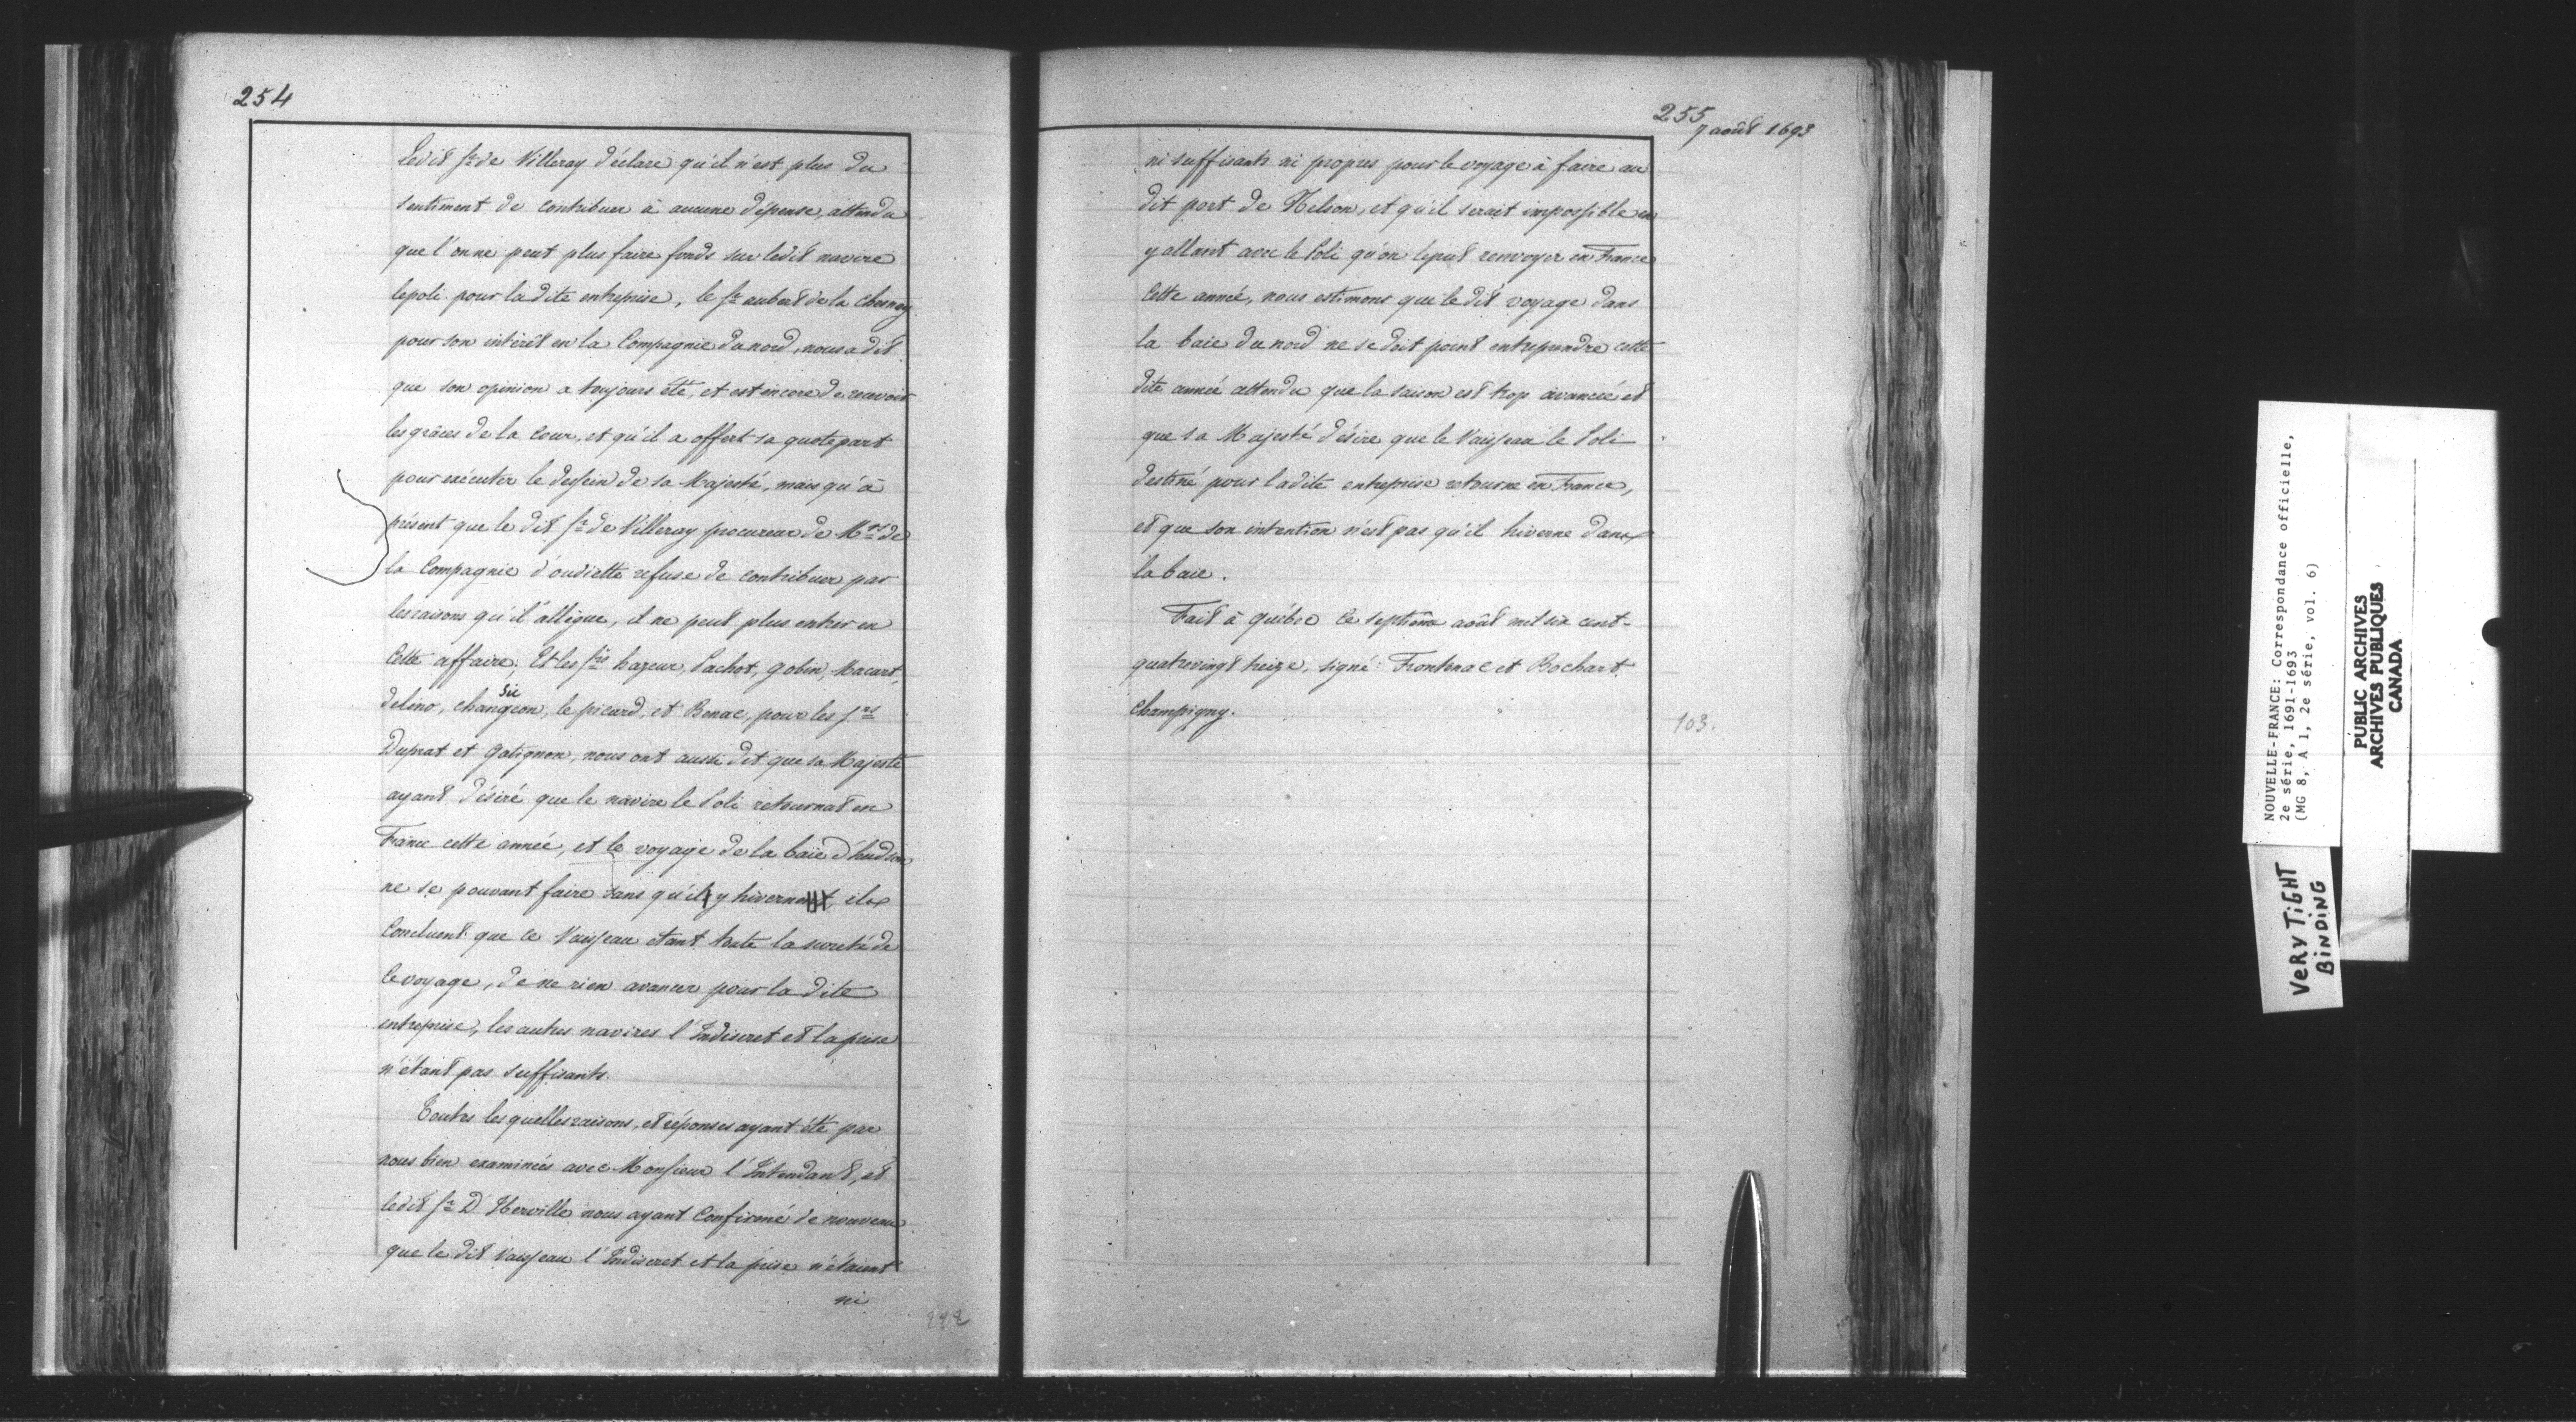 254
Ledit Sr de Villeray déclare qu'il n'est plus du
sentiment de contribuer à aucune dépense, attendu
que l'on ne peut plus faire fonds sur ledit navire
lepoli pour la dite entreprise, le Sr aubert de la Chesnay
pour son intérêt en la Compagnie du nord, nous a dit
que son opinion a toujours été, et est encore de recevoir
les grâces de la Cour, et qu'il a offert sa quotepart
pour exécuter le dessein de sa Majesté, mais qu'à
présent que le dit Sr de Villeray procureur de Mrs de
la Compagnie d'oudiette refuse de contribuer par
les raisons qu'il allègue, il ne peut plus entrer en
Cette affaire; Et les Srs hazeur, Pachot, gobin, Macart,
delino, changeon, le picard, et Benac, pour les Srs
sic
Duprat et Gatignon, nous ont aussi dit que sa Majesté
ayant désiré que le navire le Poli retournat en
France cette année, et le voyage de la baie d'hudson
ne se pouvant faire sans qu'il y hiverne ils
Concluent que ce Vaisseau étant toute la sureté de
ce voyage, de ne rien avancer pour la dite
entreprise, les autres navires l'Indiscret et la prise
n'étant pas suffisants.
Toutes lesquelles raisons, et réponses ayant été par
nous bien examinées avec Monsieur l'Intendant, et
ledit Sr D'Iberville nous ayant Confirmé de nouveau
que le dit Vaisseau l'Indiscret et la prise n'étaient
ni
255
7 août 1693
ni suffisants ni propres pour le voyage à faire au
dit port de Nelson, et qu'il serait impossible en
y allant avec le Poli qu'on le put renvoyer en France
Cette année, nous estimons que le dit voyage dans
la baie du nord ne se doit point entreprendre cette
dite année attendu que la saison est trop avancée et
que sa Majesté désire que le Vaisseau le Poli
destiné pour ladite entreprise retourne en France,
et que son intention n'est pas qu'il hiverne dans
la baie.
Fait à québec ce septième août mil six cent-
quatrevingt treize, signé: Frontenac et Bochart
Champigny.
103.
NOUVELLE-FRANCE: Correspondance officielle,
2e série, 1691-1693
(MG 8, A 1, 2e série, vol. 6)
PUBLIC ARCHIVES
ARCHIVES PUBLIQUES
CANADA
VERY TIGHT
BINDING